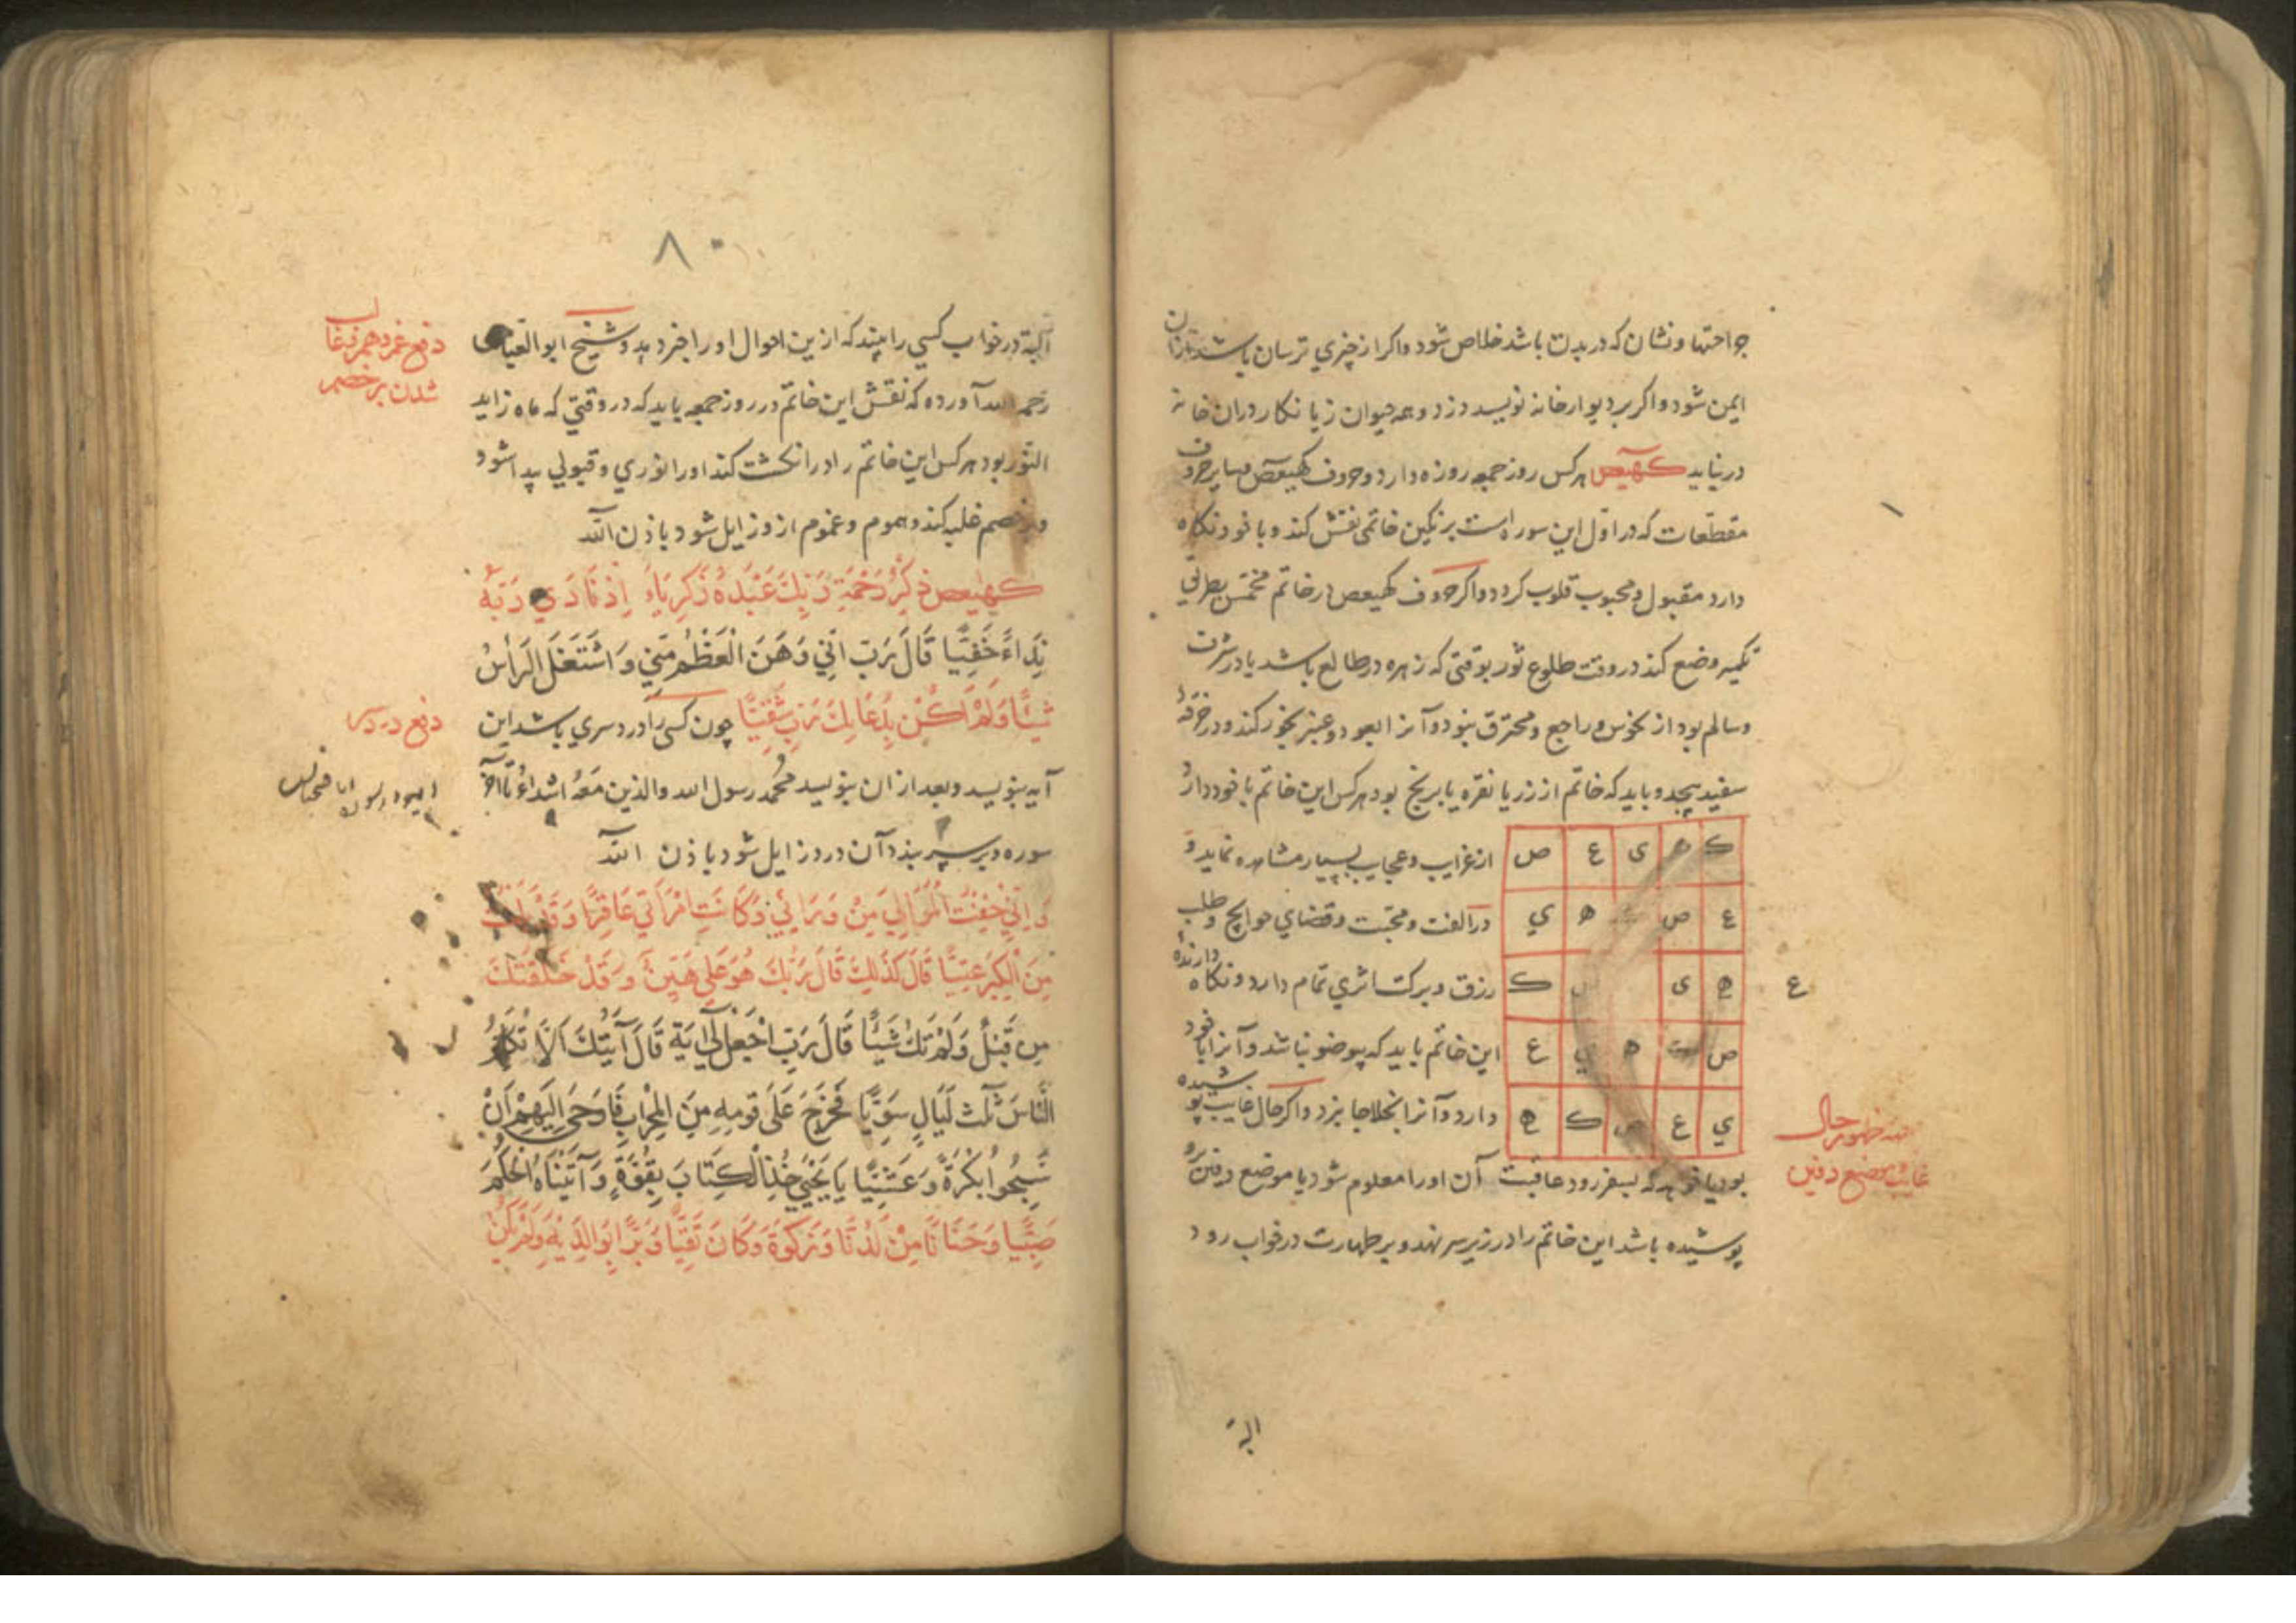 جراحتها و نشان که در بدن باشد خلاص شود و اکر از چیزی ترسان باشد ازان
ایمن شود و اکر بر دیوار خانه نویسد دزد و همه حیوان زیانکار دران خانه
در نیاید کهیعص هر کس روز جمعه روزه دارد و حروف کهیعص و سایر حروف
مقطعات که در اول این سوره است بر نکین خاتمی نقش کند و با خود نکاه
دارد مقبول و محبوب قلوب کردد و اکر حروف کهیعص در خاتم مخمس بطریق
تکسیر وضع کند در وقت طلوع ثور بوقتی که زهره در طالع باشد یا در شرف
و سالم بود از نحوس و راجع و محترق نبود و آنرا بعود و عنبر بخور کند و در خرقهٔ
سفید پیچد و باید که خاتم از زر یا نقره یا برنج بود هر کس این خاتم با خود دارد
از غرایب و عجایب بسیار مشاهده نماید و
در الفت و محبت و قضای حوایج و طلب
رزق و برکت اثری تمام دارد و نکاه دارندهٔ
این خاتم باید که بیوضو نباشد و آنرا با خود
دارد و آنرا بخلاجا نبرد و اکر حال غایب پوشیده
ک ه ی ع ص
ع ص ه ي
ه ی ک
ص ه ي ع
ي ع ص ک ه
ع
جهة ظهور حال
غایب و موضع دفین
بود یا خواهد که بسفر رود عاقبت آن اورا معلوم شود یا موضع دفین
پوشیده باشد این خاتم را در زیر سر نهد و بر طهارت در خواب رود
البة
۸۰
البة در خواب کسی را بیند که ازین احوال اورا خبر دهد و شیخ ابو العباس
رحمه الله آورده که نقش این خاتم در روز جمعه باید که در وقتی که ماه زاید
النور بود هر کس این خاتم را در انکشت کند اورا نوری و قبولی پیدا شود
و بر خصم غلبه کند و هموم و غموم ازو زایل شود باذن الله
دفع غم و هم و غالب
شدن بر خصم
كهيعص ذِكْرُ رَحْمَةِ رَبِّكَ عَبْدَهُ زَكَرِيَّاءَ إِذْ نَادَى رَبَّهُ
نِدَاءً خَفِيًّا قَالَ رَبِّ إِنِّي وَهَنَ الْعَظْمُ مِنِّي وَاشْتَعَلَ الرَّأْسُ
شَيْبًا وَلَمْ أَكُنْ بِدُعَائِكَ رَبِّ شَقِيًّا چون کسی را درد سری باشد این
آیه بنویسد و بعد ازان بنویسد محمد رسول الله والذین معه اشداء تا آخر
سوره و بر سر بندد آن درد زایل شود باذن الله
دفع درد سر
وَإِنِّي خِفْتُ الْمَوَالِيَ مِنْ وَرَائِي وَكَانَتِ امْرَأَتِي عَاقِرًا وَقَدْ بَلَغْتُ
مِنَ الْكِبَرِ عِتِيًّا قَالَ كَذَلِكَ قَالَ رَبُّكَ هُوَ عَلَيَّ هَيِّنٌ وَقَدْ خَلَقْتُكَ
مِنْ قَبْلُ وَلَمْ تَكُ شَيْئًا قَالَ رَبِّ اجْعَلْ لِي آيَةً قَالَ آيَتُكَ أَلَّا تُكَلِّمَ
النَّاسَ ثَلٰثَ لَيَالٍ سَوِيًّا فَخَرَجَ عَلَى قَوْمِهِ مِنَ الْمِحْرَابِ فَأَوْحَى إِلَيْهِمْ أَنْ
سَبِّحُوا بُكْرَةً وَعَشِيًّا يَا يَحْيَى خُذِ الْكِتَابَ بِقُوَّةٍ وَآتَيْنَاهُ الْحُكْمَ
صَبِيًّا وَحَنَانًا مِنْ لَدُنَّا وَزَكٰوةً وَكَانَ تَقِيًّا وَبَرًّا بِوَالِدَيْهِ وَلَمْ يَكُنْ